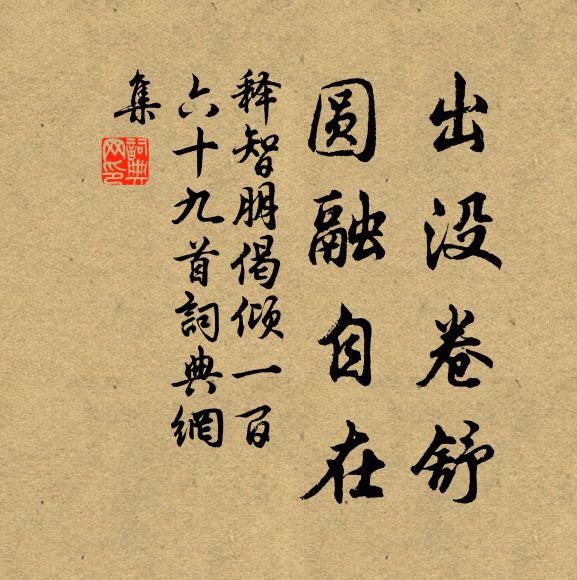 出没卷舒
圆融自在
释智朋偈倾一百
六十九首詞典網
集
詞典
网印